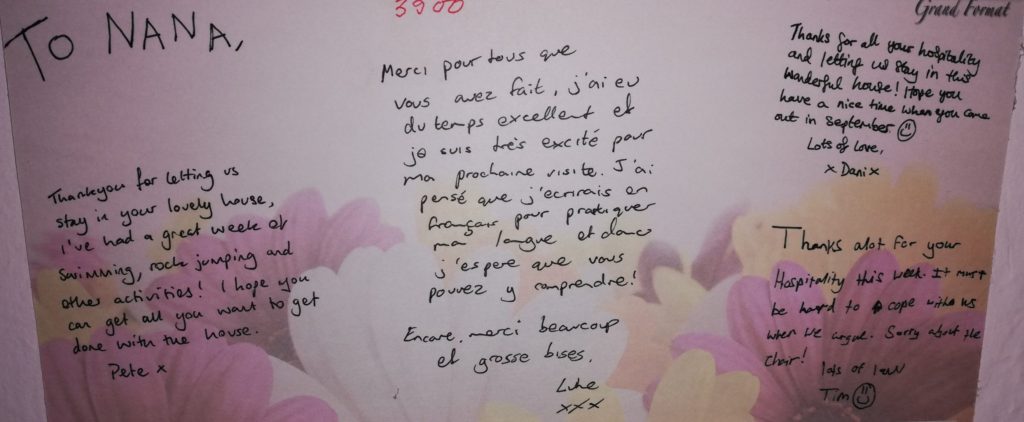 TO NANA,
3900
Grand Format
Thankyou for letting us
stay in your lovely house,
i've had a great week of
swimming, rock jumping and
other activities! I hope you
can get all you want to get
done with the house.
Pete x
Merci pour tous que
vous avez fait, j'ai eu
du temps excellent et
je suis très excité pour
ma prochaine visite. J'ai
pensé que j'écrirais en
français pour pratiquer
ma langue et donc
j'espere que vous
pouvez y comprendre!
Encore, merci beaucoup
et grosse bises,
Luke
xxx
Thanks for all your hospitality
and letting us stay in this
wonderful house! Hope you
have a nice time when you come
out in September
Lots of love,
x Dani x
Thanks alot for your
Hospitality this week. It must
be hard to cope with us
when we argue. Sorry about the
chair!
lots of love
Tim